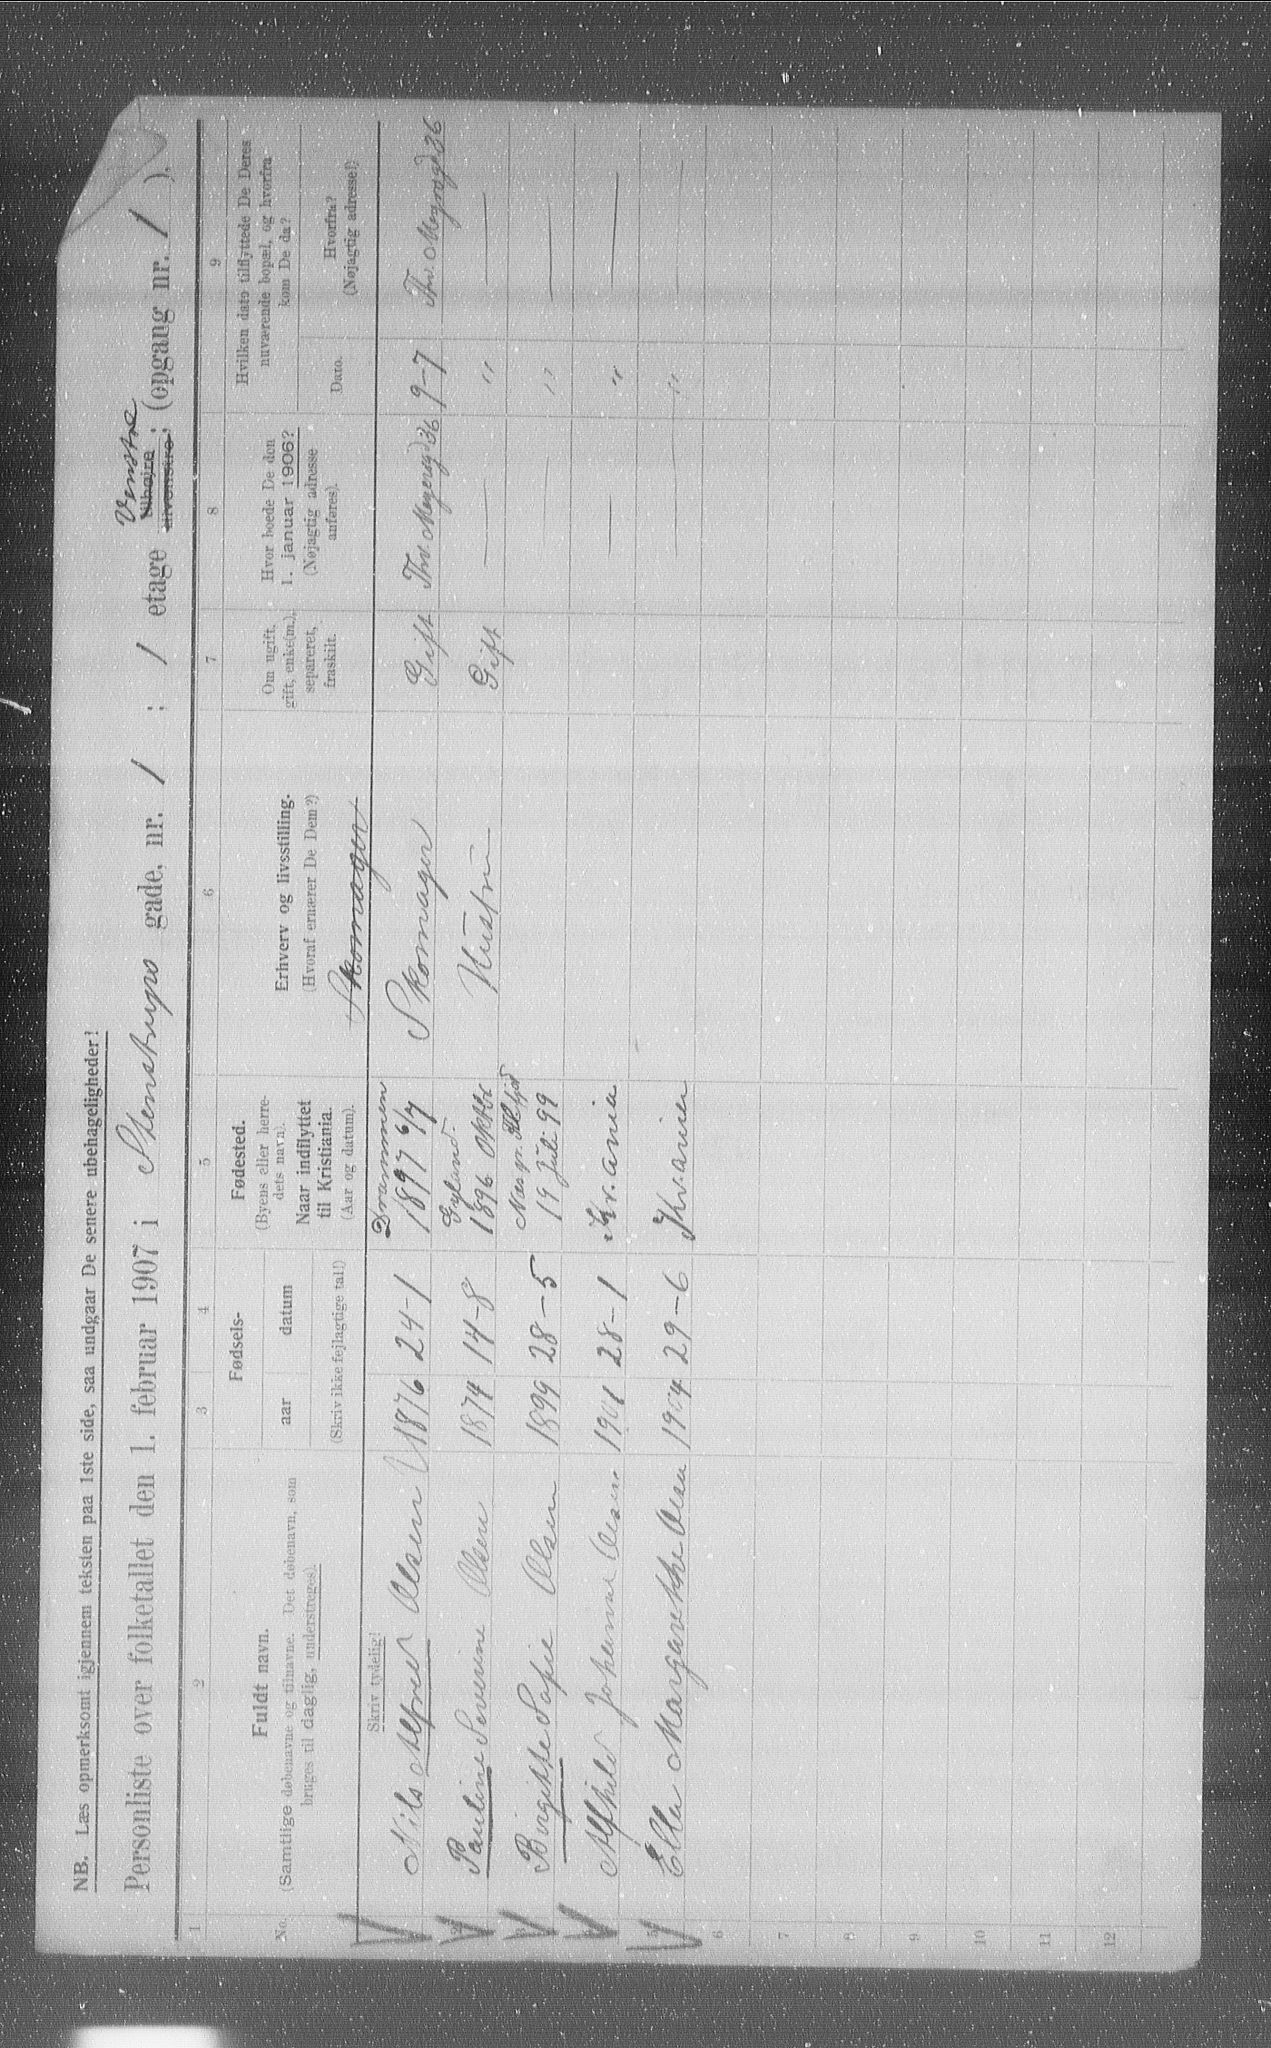 NB. Læs opmerksomt igjennem teksten paa 1ste side, saa undgaar De senere ubehageligheder!
Personliste over folketallet den 1. februar 1907 i Stenstrups gade, nr. 1 ; 1 etage tilhøjre tilvenstre Venstre ; (opgang nr. 1 ).
1 2 3 4 5 6 7 8 9
No.
Fuldt navn.
(Samtlige døbenavne og tilnavne. Det døbenavn, som
bruges til daglig, understreges)
Fødsels-
aar datum
(Skriv ikke fejlagtige tal!)
Fødested.
(Byens eller herre-
dets navn).
Naar indflyttet
til Kristiania.
(Aar og datum).
Erhverv og livsstilling.
(Hvoraf ernærer De Dem?)
Skomager
Om ugift,
gift, enke(m.),
separeret,
fraskilt.
Hvor boede De den
1. januar 1906?
(Nøjagtig adresse
anføres).
Hvilken dato tilflyttede De Deres
nuværende bopæl, og hvorfra
kom De da?
Dato.
Hvorfra?
(Nøjagtig adresse!)
Skriv tydelig!
Nils Alfred Olsen 1876 24-1 Drammen 1897 6/7 Skomager Gift Thv. Meyersgd 36 9-7 Thv. Meyersgd 36
2 Pauline Severine Olsen 1874 14-8 Gyland 1896 Oktbr Hustru Gift — " —
3 Birgitte Sofie Olsen 1899 28-5 19 Juli 99 — " —
Alfhild Johanne Olsen 1901 28-1 Kr.ania — " —
5 Ella Margarethe Olsen 1904 29-6 Kr.ania — " —
6
7
8
9
10
11
12